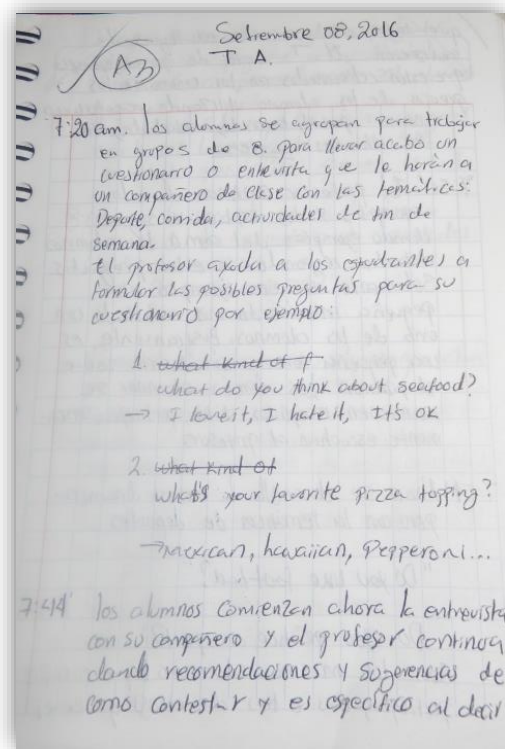 Setrembre 08, 2016
A3
T A.
7:20 am. los alumnos se agrupan para trabajar
en grupos de 8. para llevar acabo un
cuestionario o entrevista que le harán a
un compañero de clase con las temáticas:
Deporte, comida, actividades de fin de
semana.
El profesor ayuda a los estudiantes a
formular las posibles preguntas para su
cuestionario por ejemplo:
1. what kind of f
what do you think about seafood?
→ I love it, I hate it, It's ok
2. what kind of
what's your favorite pizza topping?
→ Mexican, hawaiian, Pepperoni...
7:44' los alumnos comienzan ahora la entrevista
con su compañero y el profesor continua
dando recomendaciones y sugerencias de
como contestar y es específico al decir